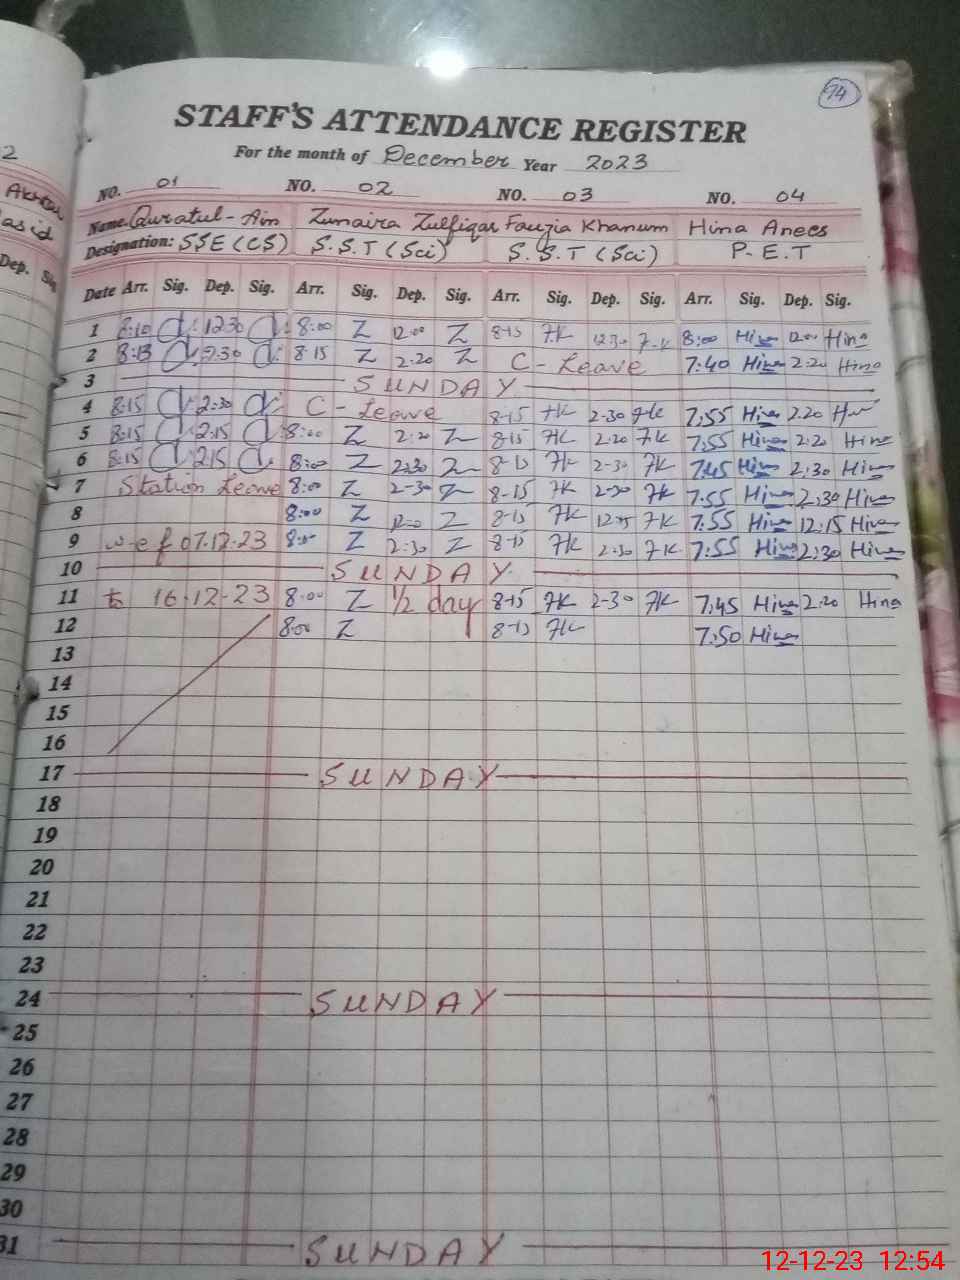 74
STAFF'S ATTENDANCE REGISTER
For the month of December Year 2023
2
NO. 01 NO. 02 NO. 03 NO. 04
Akhtar
Name. Quratul-Ain Zunaira Zulfiqar Fauzia Khanum Hina Anees
Designation: SSE (CS) S.S.T (Sci) S.S.T (Sci) P.E.T
Dep. Sig
Date Arr. Sig. Dep. Sig. Arr. Sig. Dep. Sig. Arr. Sig. Dep. Sig. Arr. Sig. Dep. Sig.
1 8:10 12:30 8:00 Z 12:00 Z 8-15 FK 12:30 F.K 8:00 Hina 12:00 Hina
2 8:13 2:30 8:15 Z 2:20 Z C-Leave 7:40 Hina 2:20 Hina
3 SUNDAY
4 8:15 2:30 C-Leave 8-15 FK 2-30 FK 7:55 Hina 2:20 Hina
5 8:15 2:15 8:00 Z 2:20 Z 8-15 FK 2-20 FK 7:55 Hina 2:20 Hina
6 8:15 2:15 8:00 Z 2:30 Z 8-15 FK 2-30 FK 7:45 Hina 2:30 Hina
7 Station Leave 8:00 Z 2-30 Z 8-15 FK 2-30 FK 7:55 Hina 2:30 Hina
8 8:00 Z Z 8-15 FK 12-15 FK 7:55 Hina 12:15 Hina
9 w-e-f 07.12.23 Z 2:30 Z 8-15 FK 2-30 FK 7:55 Hina 2:30 Hina
10 SUNDAY
11 to 16.12.23 8:00 Z 1/2 day 8-15 FK 2-30 FK 7:45 Hina 2:20 Hina
12 8:00 Z 8-15 FK 7:50 Hina
13
14
15
16
17 SUNDAY
18
19
20
21
22
23
24 SUNDAY
25
26
27
28
29
30
31 SUNDAY
12-12-23 12:54